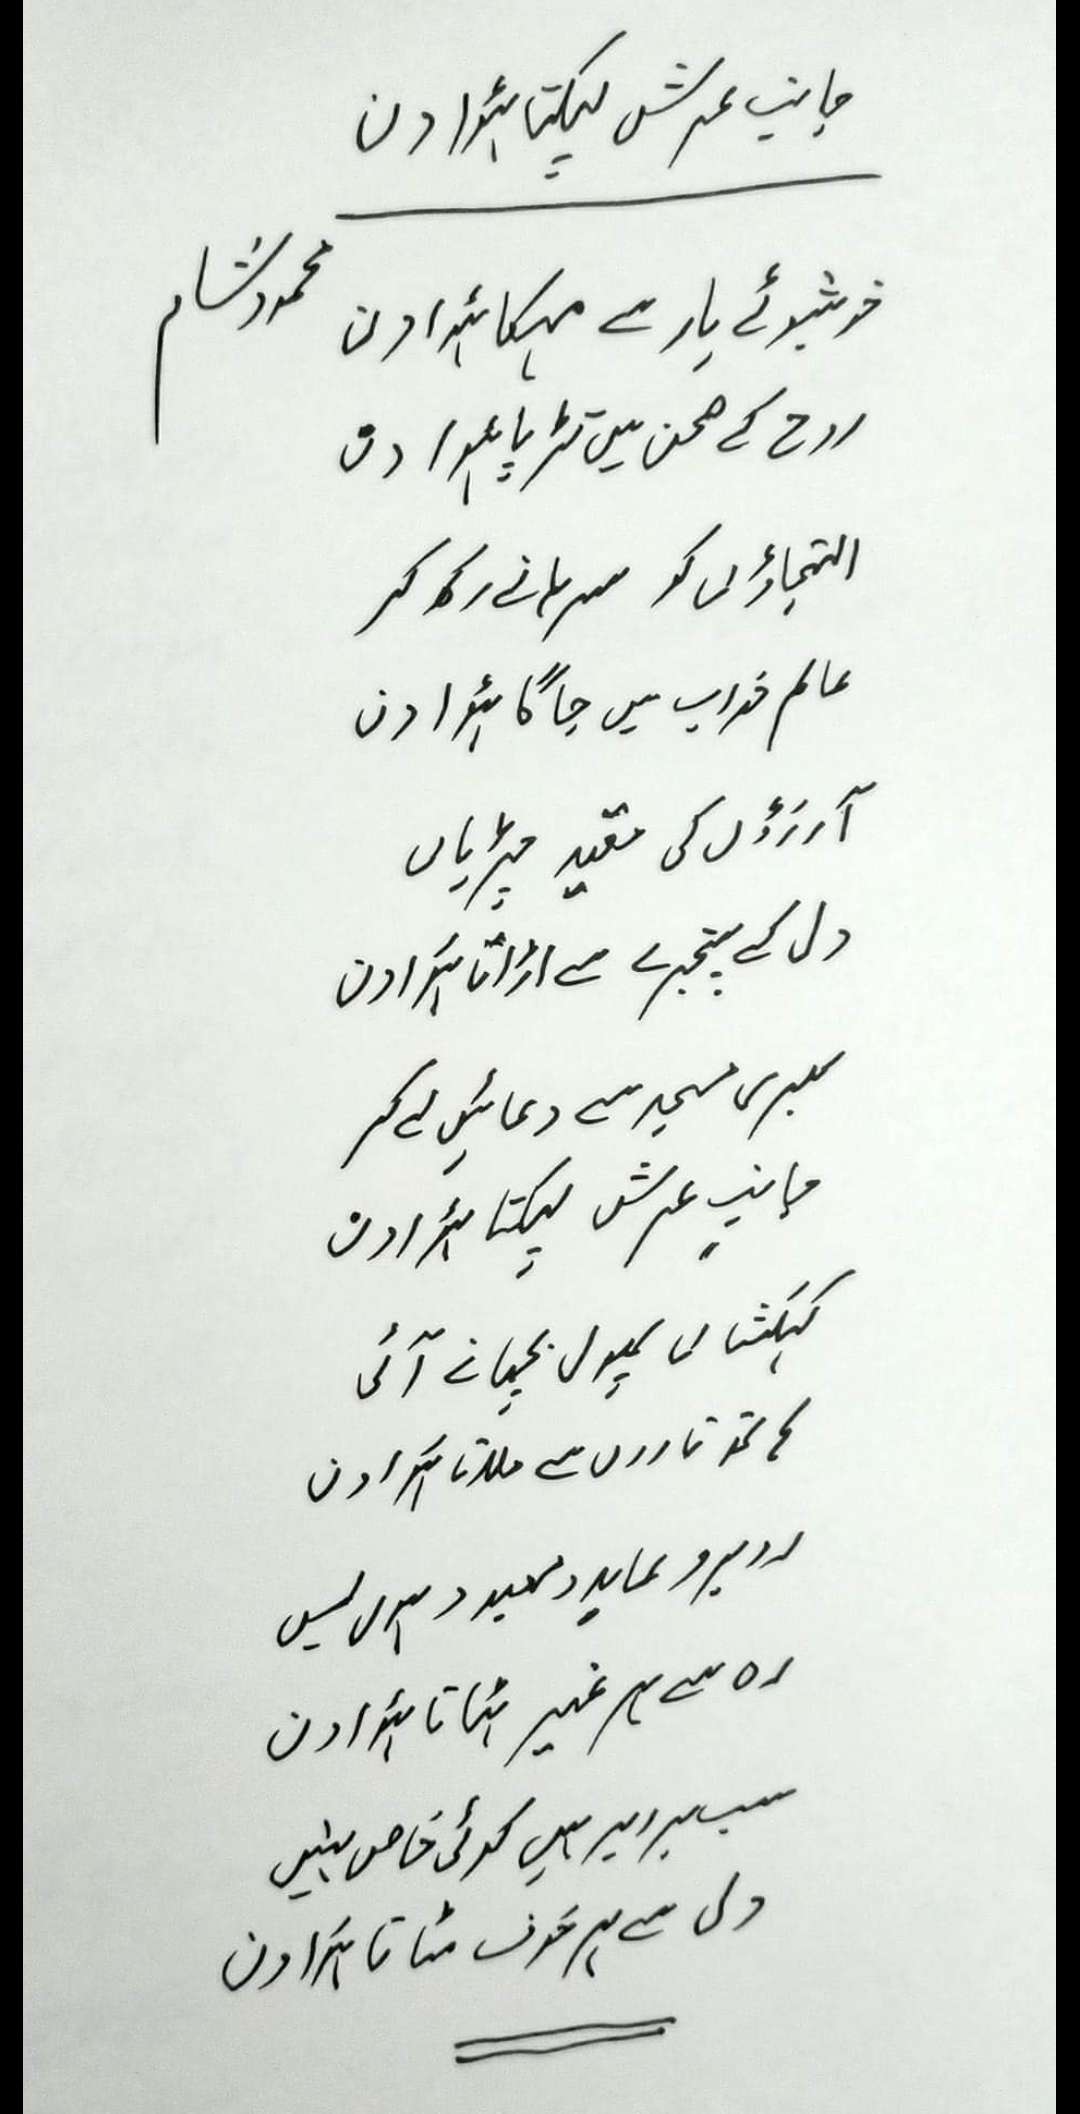 جانبِ عرش لپکتا ہُوا دن
محمود شام
خوشبوئے یار سے مہکا ہُوا دن
روح کے صحن میں تڑپا ہُوا دن
التجاؤں کو سرہانے رکھ کر
عالم خواب میں جاگا ہُوا دن
آرزؤں کی مقید چڑیاں
دل کے پنجرے سے اڑاتا ہُوا دن
میری مسجد سے دعائیں لے کر
جانبِ عرش لپکتا ہُوا دن
کہکشاں پھول بچھانے آئی
ہاتھ تاروں سے ملاتا ہُوا دن
روبرو عابد و معبود ہوں لیں
رہ سے ہر غیر ہٹاتا ہُوا دن
سب برابر ہیں کوئی خاص نہیں
دل سے ہر خوف مٹاتا ہُوا دن